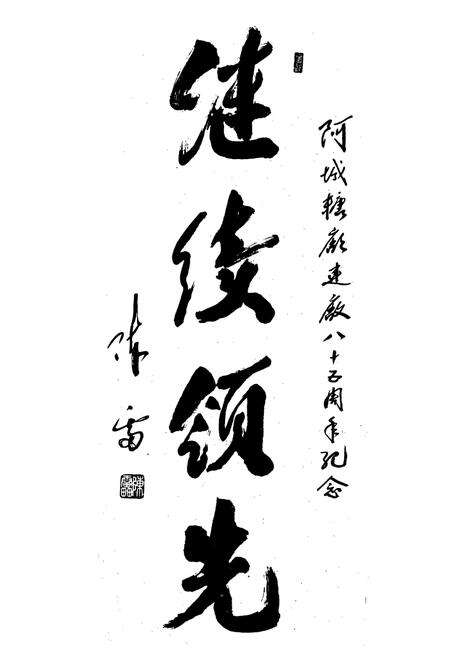 阿城糖厰建厰八十五周年纪念
继续领先
陈雷